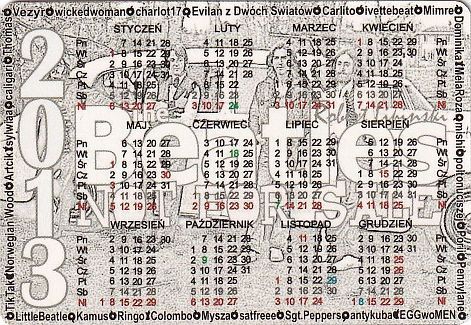 Vezyr wickedwoman charlot17 Evilan z Dwóch Światów Carlito ivettebeat Mimre
2013
STYCZEŃ LUTY MARZEC KWIECIEŃ
Pn 7 14 21 28 4 11 18 25 4 11 18 25 1 8 15 22 29
Wt 1 8 15 22 29 5 12 19 26 5 12 19 26 2 9 16 23 30
Śr 2 9 16 23 30 6 13 20 27 6 13 20 27 3 10 17 24
Cz 3 10 17 24 31 7 14 21 28 7 14 21 28 4 11 18 25
Pt 4 11 18 25 1 8 15 22 1 8 15 22 29 5 12 19 26
So 5 12 19 26 2 9 16 23 2 9 16 23 30 6 13 20 27
NI 6 13 20 27 3 10 17 24 3 10 17 24 31 7 14 21 28
The Beatles
MAJ CZERWIEC LIPIEC SIERPIEŃ
Pn 6 13 20 27 3 10 17 24 1 8 15 22 29 5 12 19 26
Wt 7 14 21 28 4 11 18 25 2 9 16 23 30 6 13 20 27
Śr 1 8 15 22 29 5 12 19 26 3 10 17 24 31 7 14 21 28
Cz 2 9 16 23 30 6 13 20 27 4 11 18 25 1 8 15 22 29
Pt 3 10 17 24 31 7 14 21 28 5 12 19 26 2 9 16 23 30
So 4 11 18 25 1 8 15 22 29 6 13 20 27 3 10 17 24 31
NI 5 12 19 26 2 9 16 23 30 7 14 21 28 4 11 18 25
WRZESIEŃ PAŹDZIERNIK LISTOPAD GRUDZIEŃ
Pn 2 9 16 23 30 7 14 21 28 4 11 18 25 2 9 16 23 30
Wt 3 10 17 24 1 8 15 22 29 5 12 19 26 3 10 17 24 31
Śr 4 11 18 25 2 9 16 23 30 6 13 20 27 4 11 18 25
Cz 5 12 19 26 3 10 17 24 31 7 14 21 28 5 12 19 26
Pt 6 13 20 27 4 11 18 25 1 8 15 22 29 6 13 20 27
So 7 14 21 28 5 12 19 26 2 9 16 23 30 7 14 21 28
NI 1 8 15 22 29 6 13 20 27 3 10 17 24 1 8 15 22 29
TikTak Norwegian Wood Artcik sylwiaa caligari Thomas
Dominika MalaRoza mishi
Pennylane
LittleBeatle Kamus Ringo Colombo Mysza satfreee Sgt.Peppers antykuba EGGwoMEN